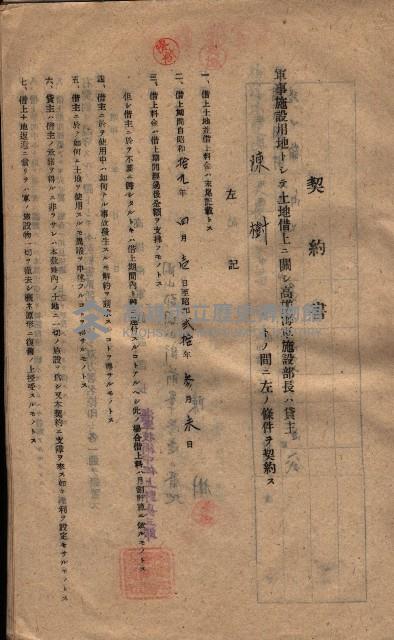 契約書
軍事施設用地トシテ土地借上ニ關シ高雄海軍施設部長ハ貸主
陳樹 トノ間ニ左ノ條件ヲ契約ス
左記
一、借上土地並借上料金ハ末尾記載トス
二、借上期間自昭和拾九年四月壱日至昭和貳拾年參月末日
三、借上料金ハ借上期間經過後全額ヲ支拂フモノトス
但シ借主ニ於テ不要ニ歸シタルトキハ借上期間內ト雖モ返還スルコトアルベシ此ノ場合借上料ハ月割計算ニ依ルモノトス
四、借主ニ於テ使用中ハ如何ナル事故發生スルモ解約ヲ請求スルコトヲ得サルモノトス
五、借主ニ於テ如何ニ土地ヲ使用スルモ異議ヲ申サルモノトス
六、貸主ハ借主ノ承諾ヲ得ルニ非ラサレハ本敷地內ノ土地ニ一切ノ施設ヲ爲シ又本契約ニ支障ヲ來ス如キ權利ヲ設定セサルモノトス
七、借上土地返還ニ當リテハ軍ノ施設物一切ヲ撤去シ概ネ原形ニ復舊ノ上授受スルモノトス
高雄市立歷史博物館
KAOHSIUNG MUSEUM OF HISTORY